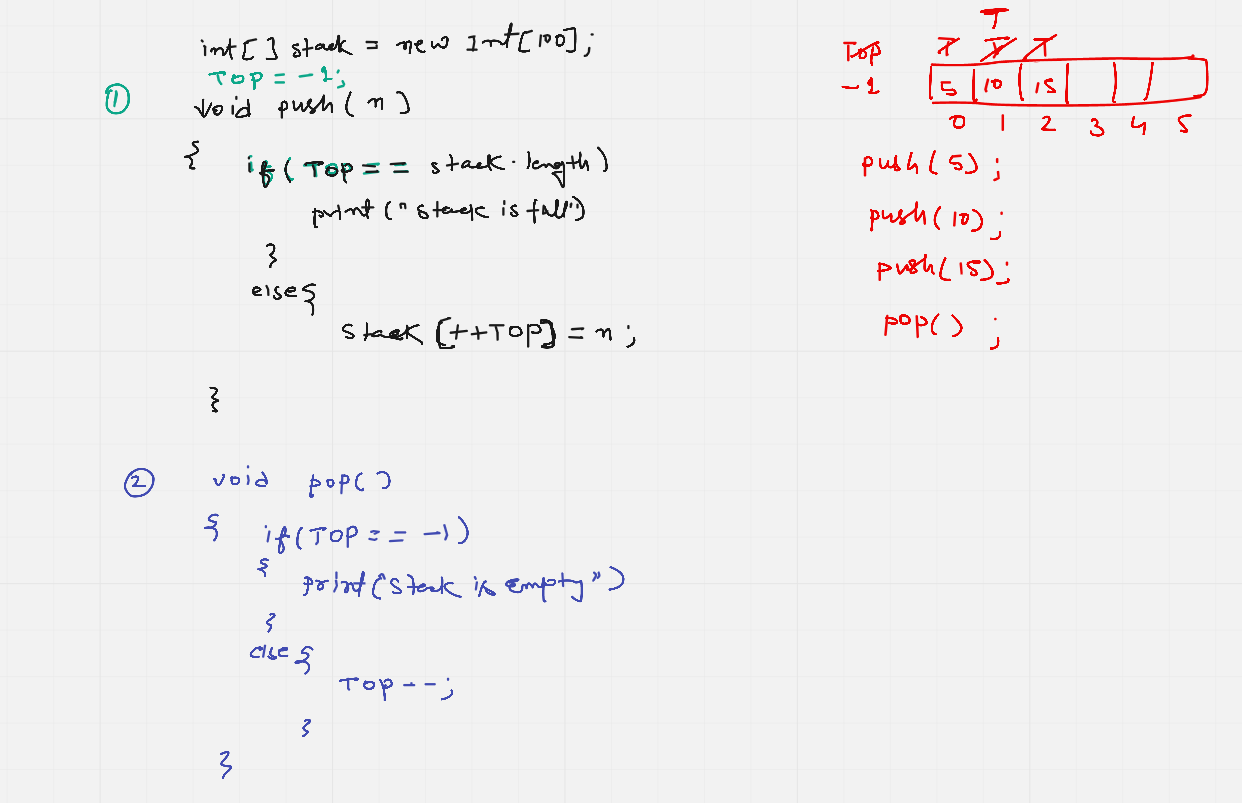 int[] stack = new Int[100];
TOP = -1;
① void push(n)
{ if( TOP == stack.length)
print("stack is full")
}
else{
stack [++TOP] = n;
}
② void pop()
{ if(TOP == -1)
{ print("stack is empty")
}
else {
TOP--;
}
}
T
Top T T T
-1 5 10 15
0 1 2 3 4 5
push(5);
push(10);
push(15);
pop() ;